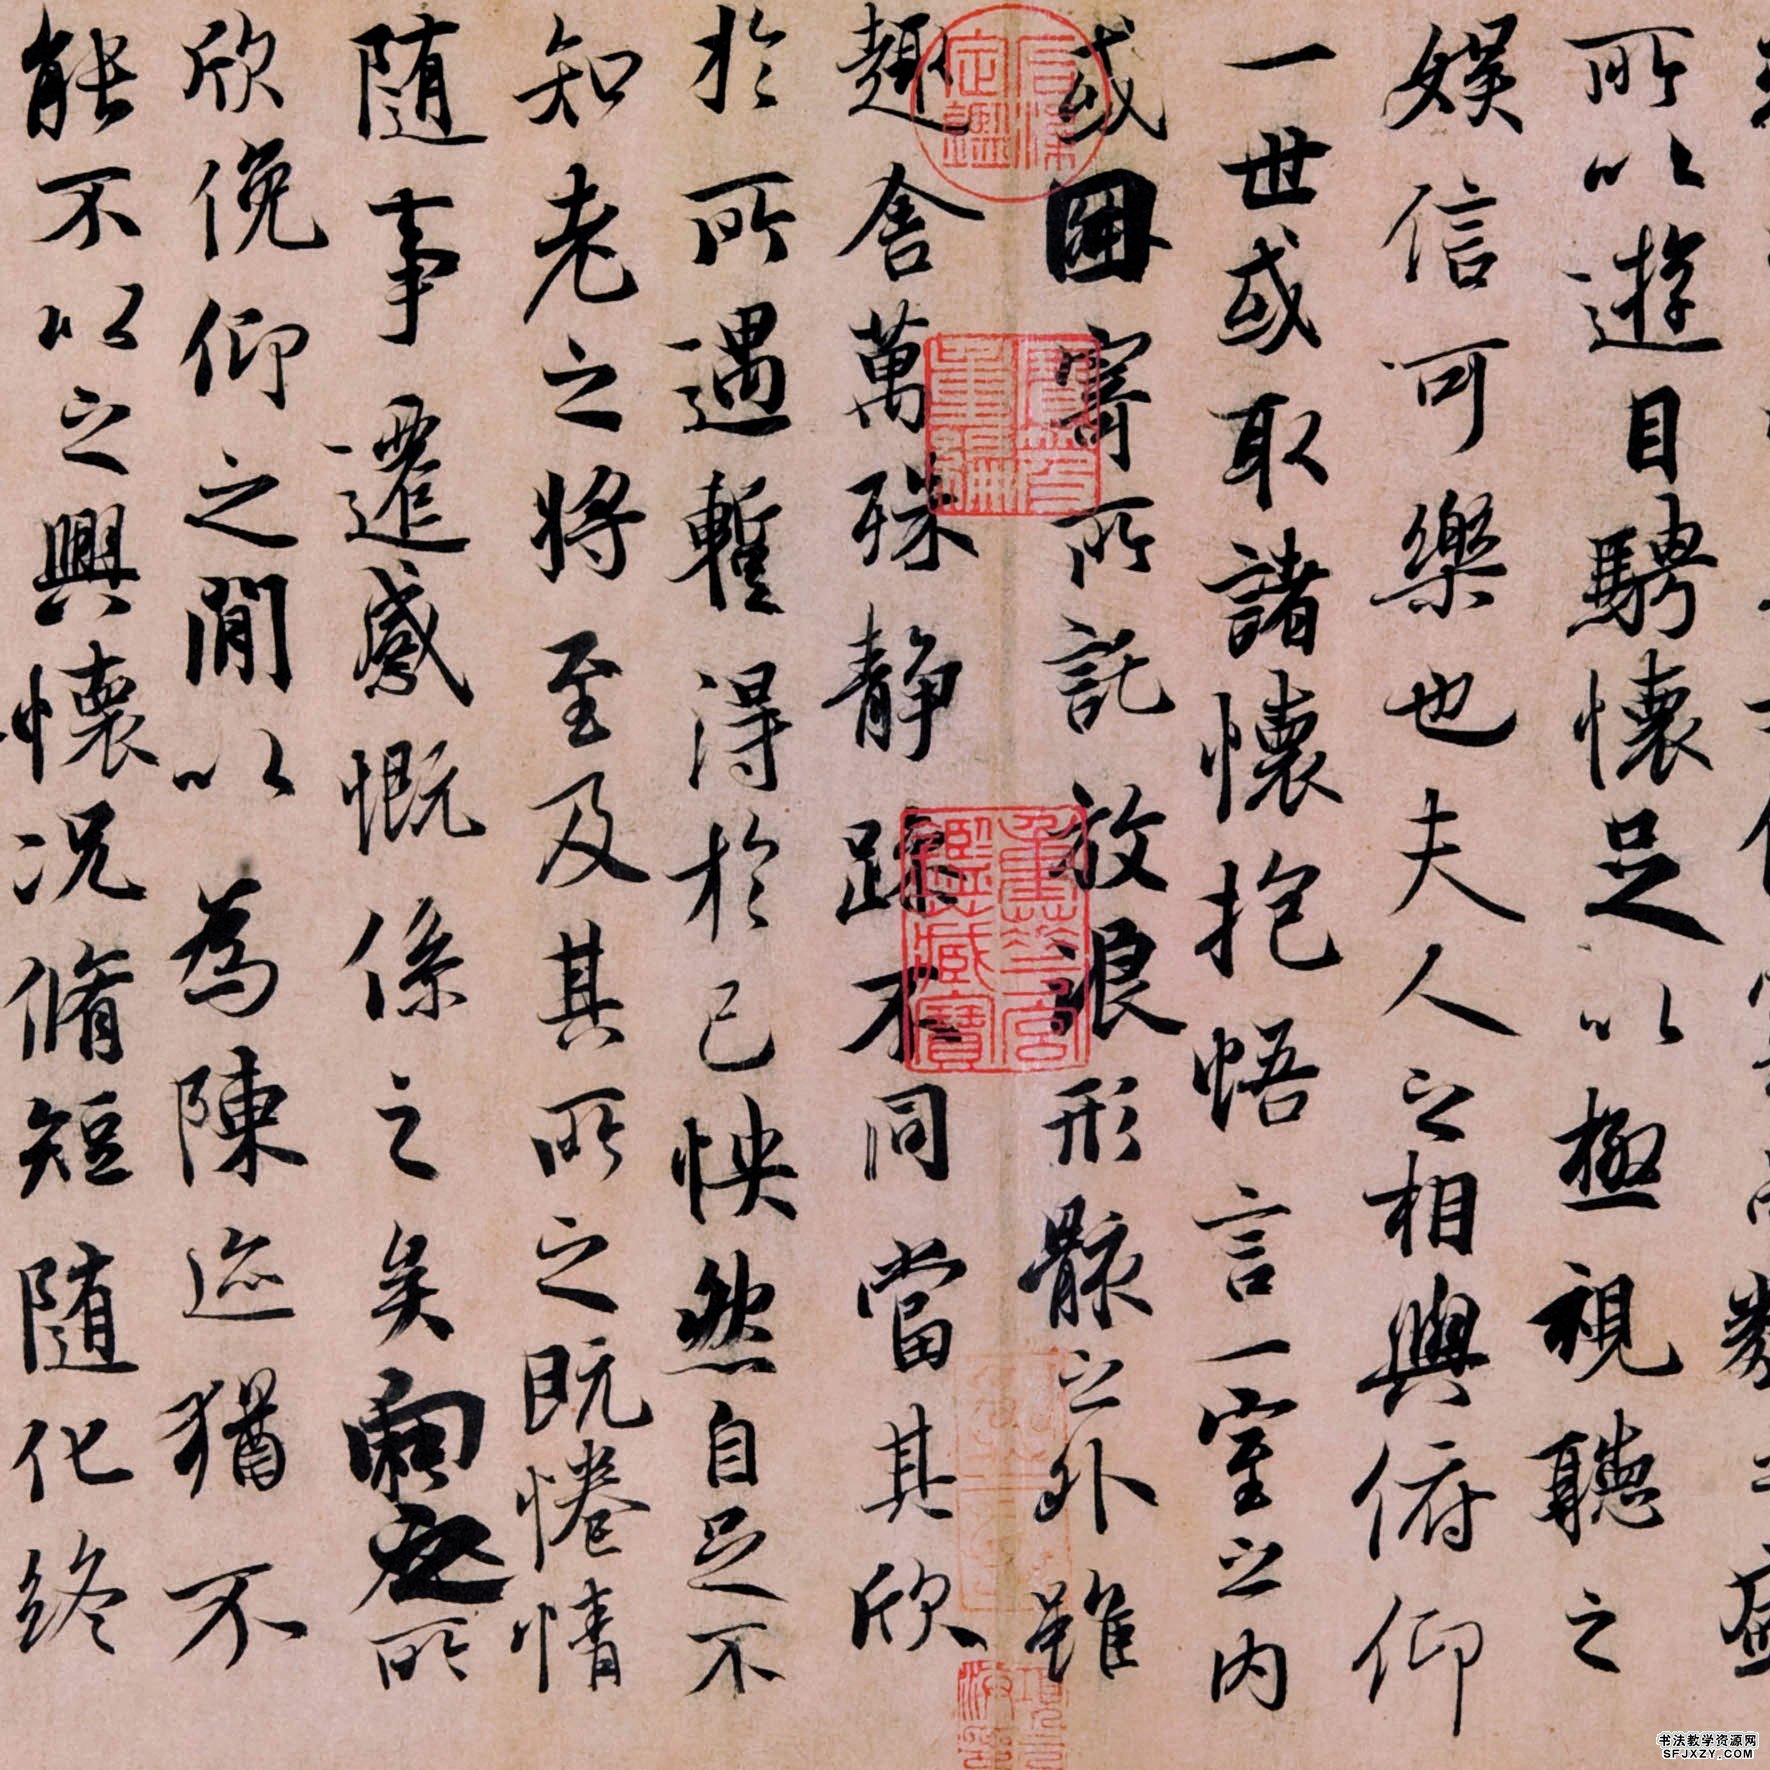 所以遊目騁懷足以極視聽之
娛信可樂也夫人之相與俯仰
一世或取諸懷抱悟言一室之內
或因寄所託放浪形骸之外雖
趣舍萬殊靜躁不同當其欣
於所遇暫得於己怏然自足不
知老之將至及其所之既惓情
随事遷感慨係之矣向之所
欣俛仰之閒以為陳迹猶不
能不以之興懷況脩短随化終
書法教学资源网
SFJXZY.COM